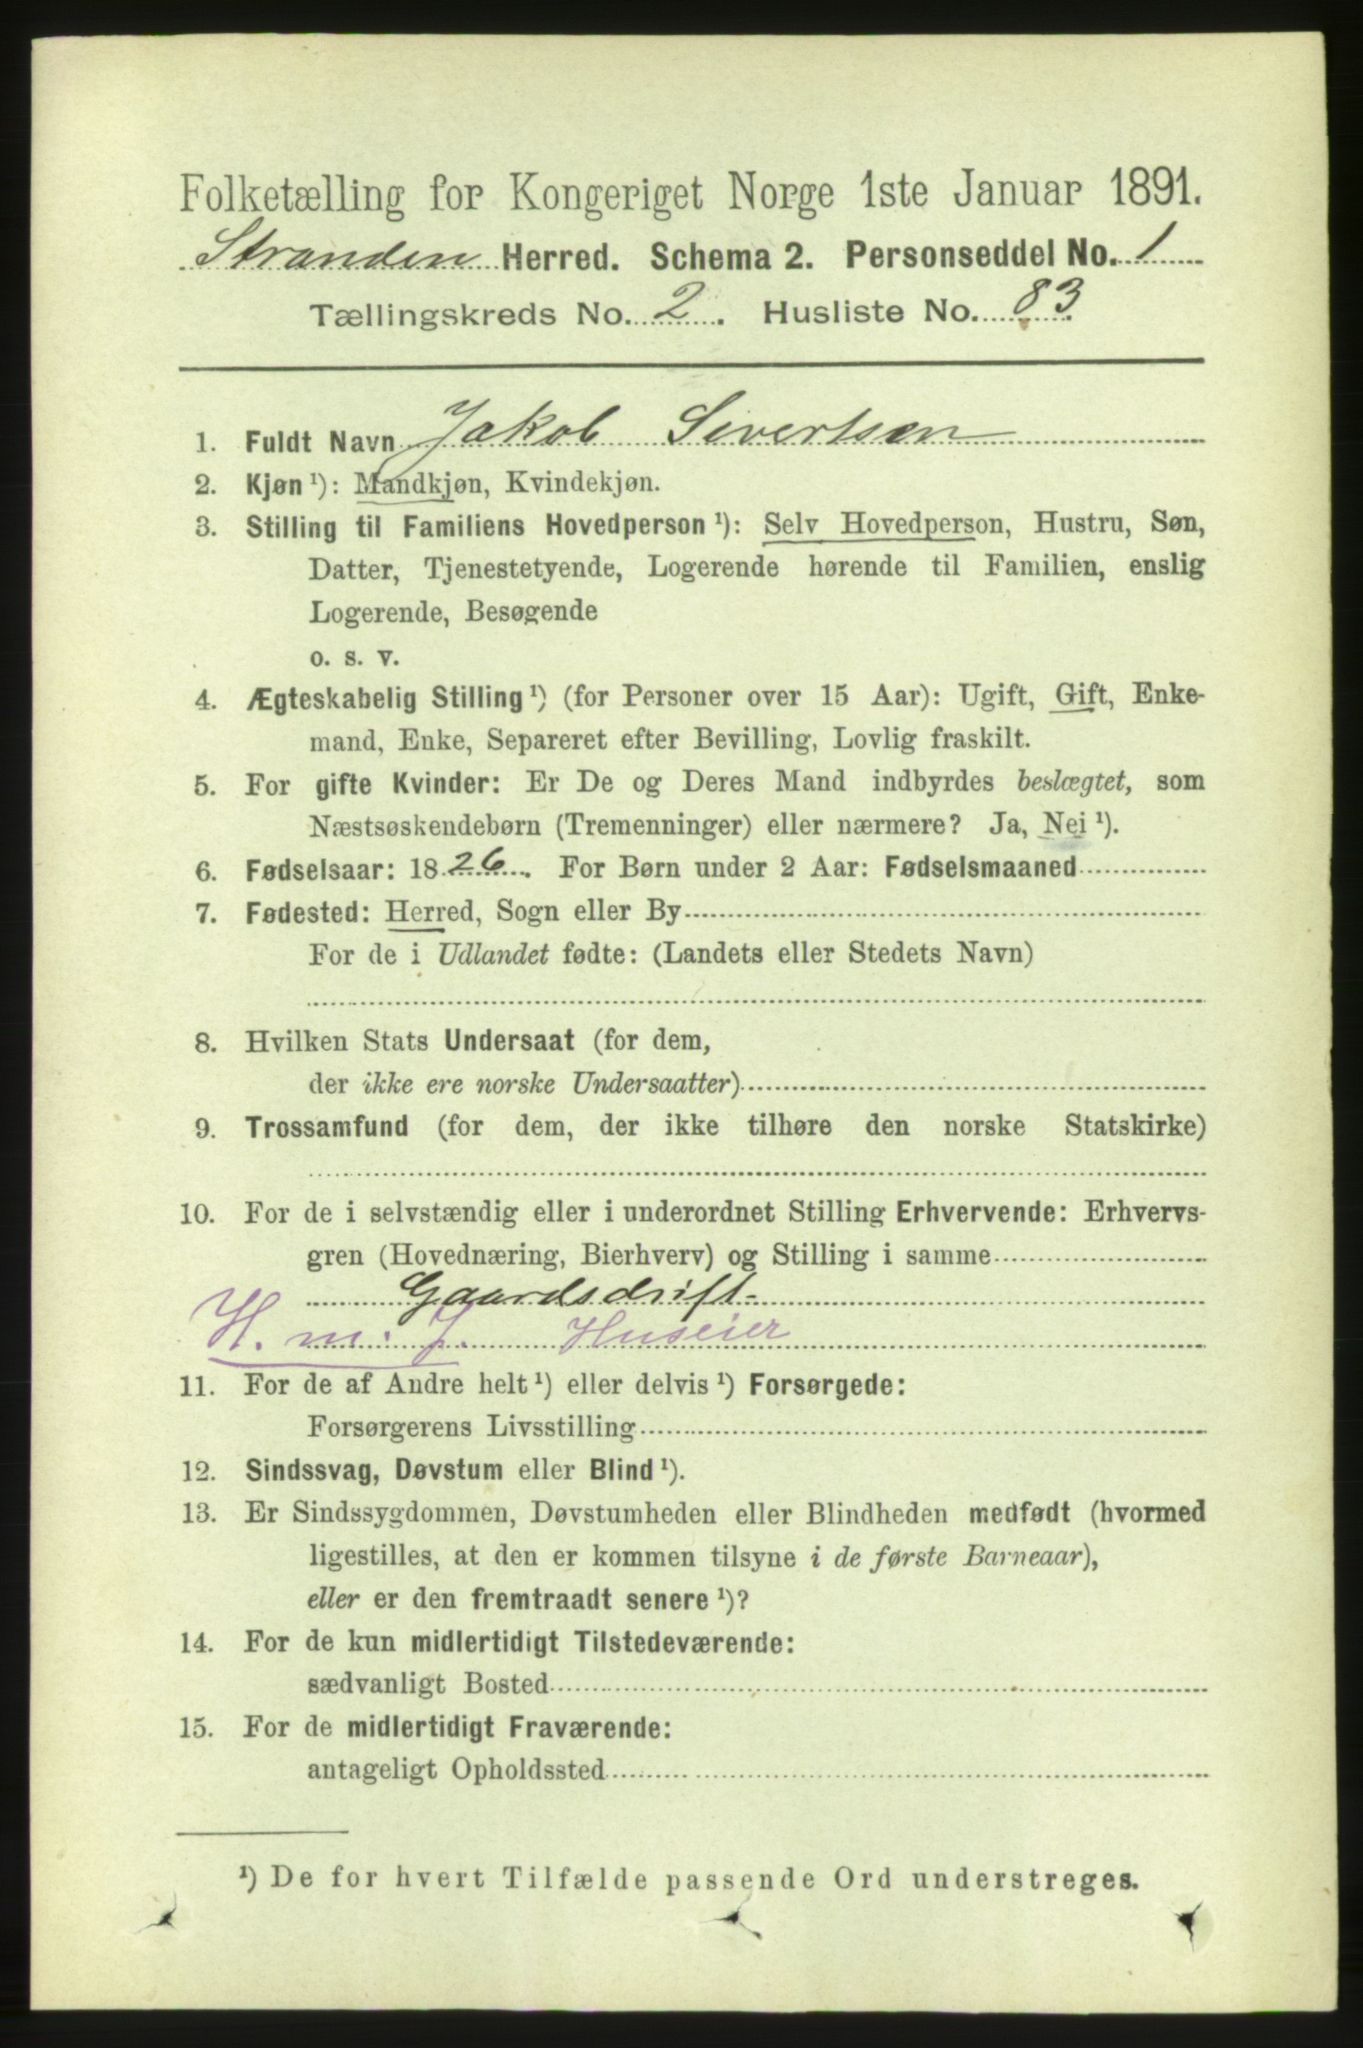 Folketælling for Kongeriget Norge 1ste Januar 1891.
Stranden Herred. Schema 2. Personseddel No. 1
Tællingskreds No. 2. Husliste No. 83
1. Fuldt Navn Jakob Sivertsen
2. Kjøn ¹): Mandkjøn, Kvindekjøn.
3. Stilling til Familiens Hovedperson ¹): Selv Hovedperson, Hustru, Søn,
Datter, Tjenestetyende, Logerende hørende til Familien, enslig
Logerende, Besøgende
o. s. v.
4. Ægteskabelig Stilling ¹) (for Personer over 15 Aar): Ugift, Gift, Enke-
mand, Enke, Separeret efter Bevilling, Lovlig fraskilt.
5. For gifte Kvinder: Er De og Deres Mand indbyrdes beslægtet, som
Næstsøskendebørn (Tremenninger) eller nærmere? Ja, Nei ¹).
6. Fødselsaar: 1826. For Børn under 2 Aar: Fødselsmaaned
7. Fødested: Herred, Sogn eller By
For de i Udlandet fødte: (Landets eller Stedets Navn)
8. Hvilken Stats Undersaat (for dem,
der ikke ere norske Undersaatter)
9. Trossamfund (for dem, der ikke tilhøre den norske Statskirke)
10. For de i selvstændig eller i underordnet Stilling Erhvervende: Erhvervs-
gren (Hovednæring, Bierhverv) og Stilling i samme
Gaardsdrift.
H. m. J. Huseier
11. For de af Andre helt ¹) eller delvis ¹) Forsørgede:
Forsørgerens Livsstilling
12. Sindssvag, Døvstum eller Blind ¹).
13. Er Sindssygdommen, Døvstumheden eller Blindheden medfødt (hvormed
ligestilles, at den er kommen tilsyne i de første Barneaar),
eller er den fremtraadt senere ¹)?
14. For de kun midlertidigt Tilstedeværende:
sædvanligt Bosted
15. For de midlertidigt Fraværende:
antageligt Opholdssted
¹) De for hvert Tilfælde passende Ord understreges.